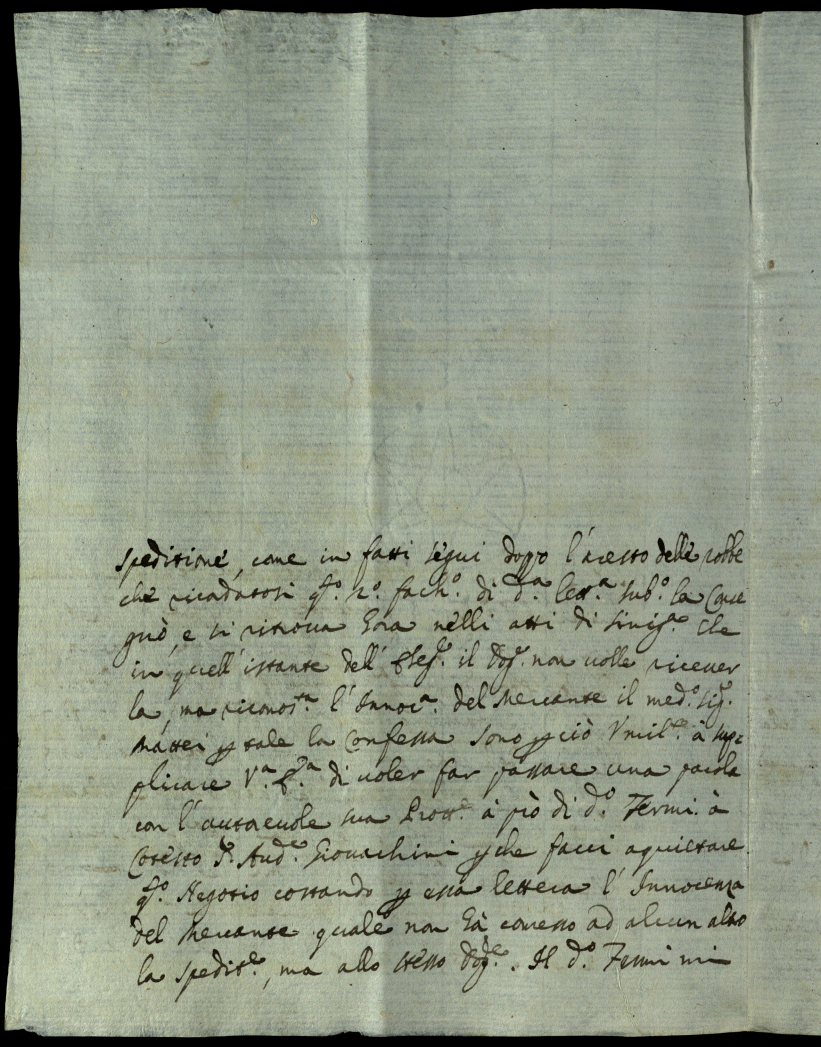 speditione, come in fatti seguì doppo l'aresto delle robbe
che ricadutosi q.o n.o fach.o di d.a lett.a sub.o la conse
gnò, e si ritrova hora nelli atti di Sinig.a che
in quell'istante dell' Eseq.e il Dog.e non volle ricever
la, ma riconos.ta l'Innoc.a del Mercante il med.o Sig.
Mattei p tale la Confessa sono p ciò Umil.e à sup=
plicare V.a E.za di voler far passare una parola
con l'autorevole sua Prott.e à prò di d.o Fermi à
Cotesto S. Aud.e Giovachini p che facci aquietare
q.o Negotio costando p essa lettera l'Innocenza
del Mercante quale non hà concesso ad alcun altro
la spedit.e, ma allo stesso Dog.e. Il d.o Fermi mi